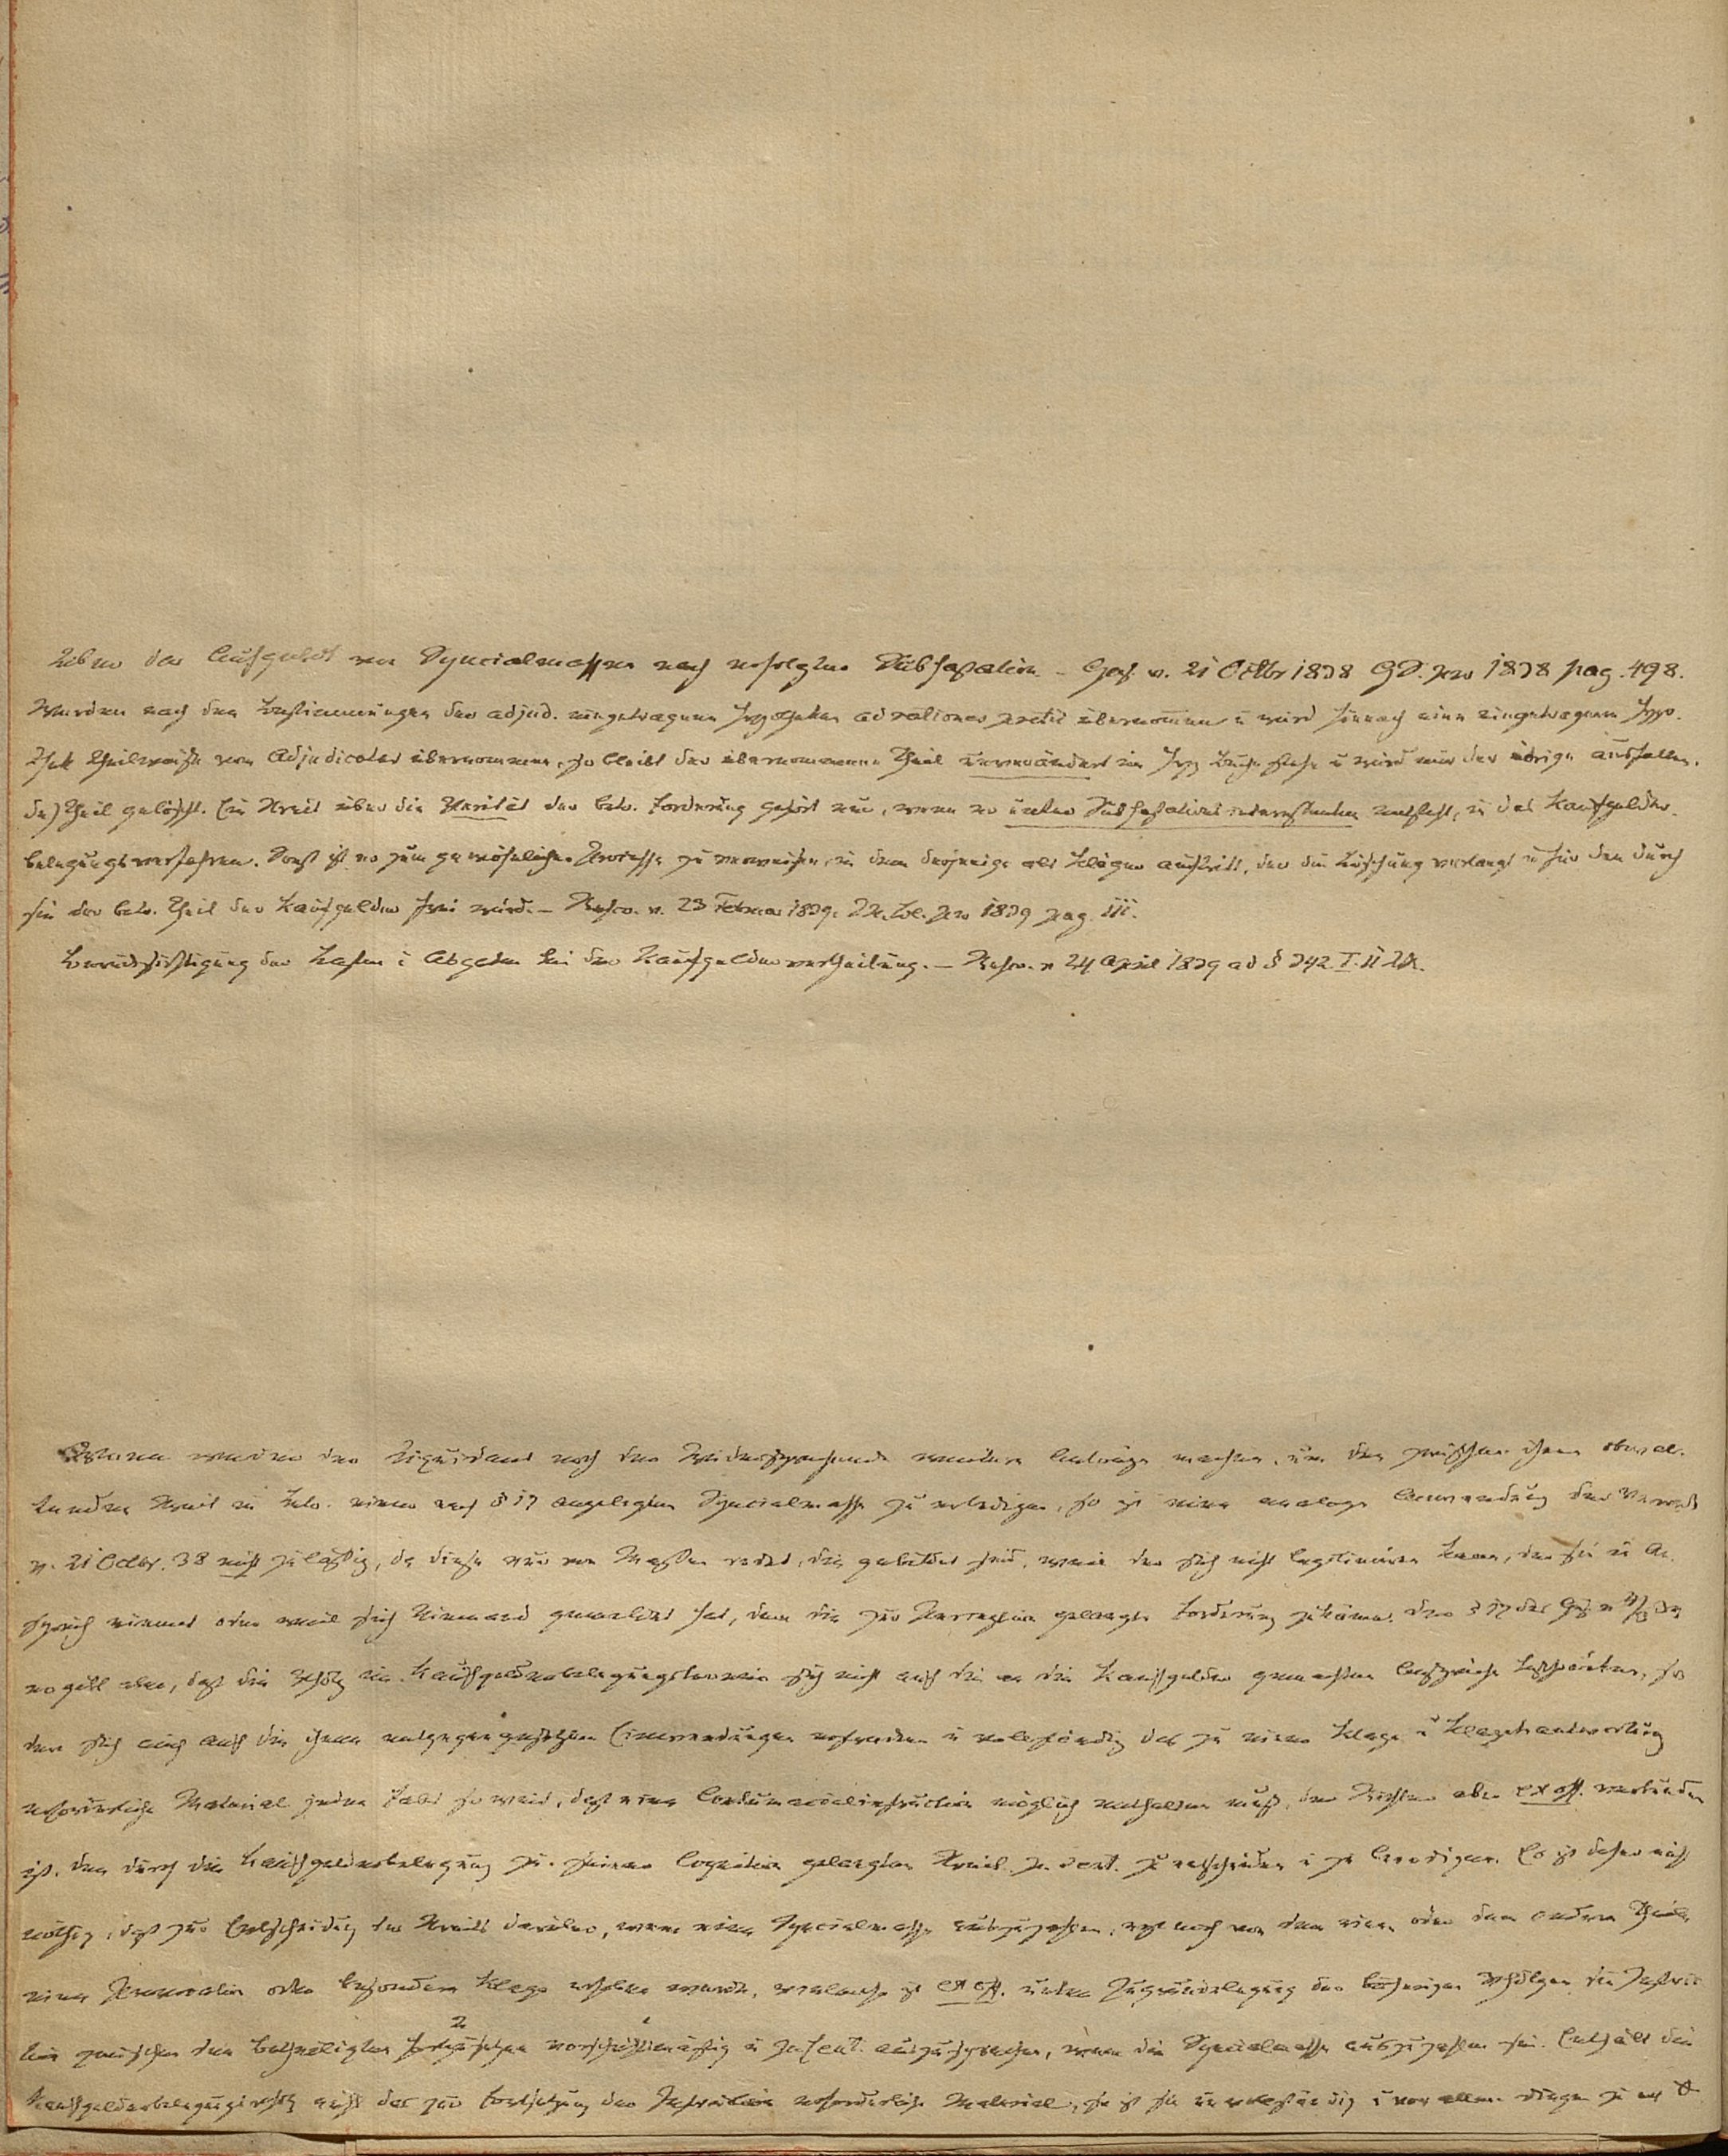 Ueber das Aufgebot von Specialmassen nach erfolgter Subhastation – Ges. v. 21 Octbr 1838 GS. pro 1838 pag. 498.
Werden nach den Bestimmungen der adjud. eingetragene Hypotheken ad rationem pretii übernommen u wird hienach eine eingetragene Hypo-
thek theilweise vom Adjudicatar übernommen, so bleibt der übernommene Theil unverändert im Hyp Buche stehn u wird nur der übrige ausfallen-
de Theil gelöscht. Ein Streit über die Priorität der betr. Forderung gehört nur, wenn er unter Subhastationsinteressenten entsteht, in das Kaufgelder-
belegungsverfahren. Sonst ist er zum gewöhnlichen Prozesse zu verweisen, in dem derjenige als Kläger auftritt, der die Löschung verlangt u für den durch
sie der betr. Theil der Kaufgelder frei wird. – Rescr. v. 23 Februar 1839. J. M. Bl. pro 1839 pag. 111.
Berücksichtigung der Lasten u Abgaben bei der Kaufgeldervertheilung. – Rescr. v 24 April 1839 ad § 342 I. 11 LR.
Wenn weder der Liquidant noch der Widersprechende weitere Anträge machen, um den zwischen ihnen obwal-
tenden Streit in Betr. einer nach § 17 angelegten Specialmasse zu erledigen, so ist eine analoge Anwendung der Verord
v. 21 Octbr. 38 nicht zulässig, da diese nur von Massen redet, die gebildet sind, weil der sich nicht legitimiren kann, der sie in An-
spruch nimmt oder weil sich Niemand gemeldet hat, dem die zur Perception gelangte Forderung zukäme. Der § 17 des Ges. v 4/3 34
ergiebt aber, daß die Vhdlg im Kaufgelderbelegungstermin sich nicht auf die an die Kaufgelder gemachten Ansprüche beschränken, son
dern sich auch auf die ihnen entgegengesetzten Einwendungen erstrecken u vollständig das zu einer Klage u Klagebeantwortung
erforderliche Material jeden Falls so weit, daß eine Contumacialinstruction möglich enthalten muß, der Richter aber ex off. verbunden
ist, den durch die Kaufgelderbelegung zu seiner Cognition gelangten Streit p. sent. zu entscheiden u zu erledigen. Es ist daher nicht
nöthig, daß zur Entscheidung des Streits darüber, wem eine Specialmasse auszuzahlen, erst noch von dem einen oder dem andern Theile
eine Provocation oder besondere Klage erhoben werde, vielmehr ist ex off. unter Zugrundelegung der bisherigen Vhdlgen die Instruc
tion zwischen den Betheiligten fortzusetzen vorschriftsmäßig u p sent. auszusprechen, wem die Specialmasse auszuzahlen sei. Enthält die
Kaufgelderbelegungsvhdlg nicht das zur Fortsetzung der Instruction erforderliche Material, so ist sie unvollständig u vor allen Dingen zu